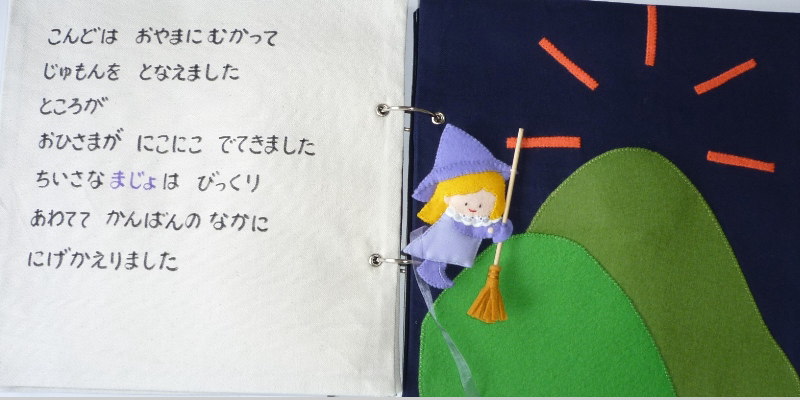 こんどは おやまに むかって
じゅもんを となえました
ところが
おひさまが にこにこ でてきました
ちいさな まじょは びっくり
あわてて かんばんの なかに
にげかえりました